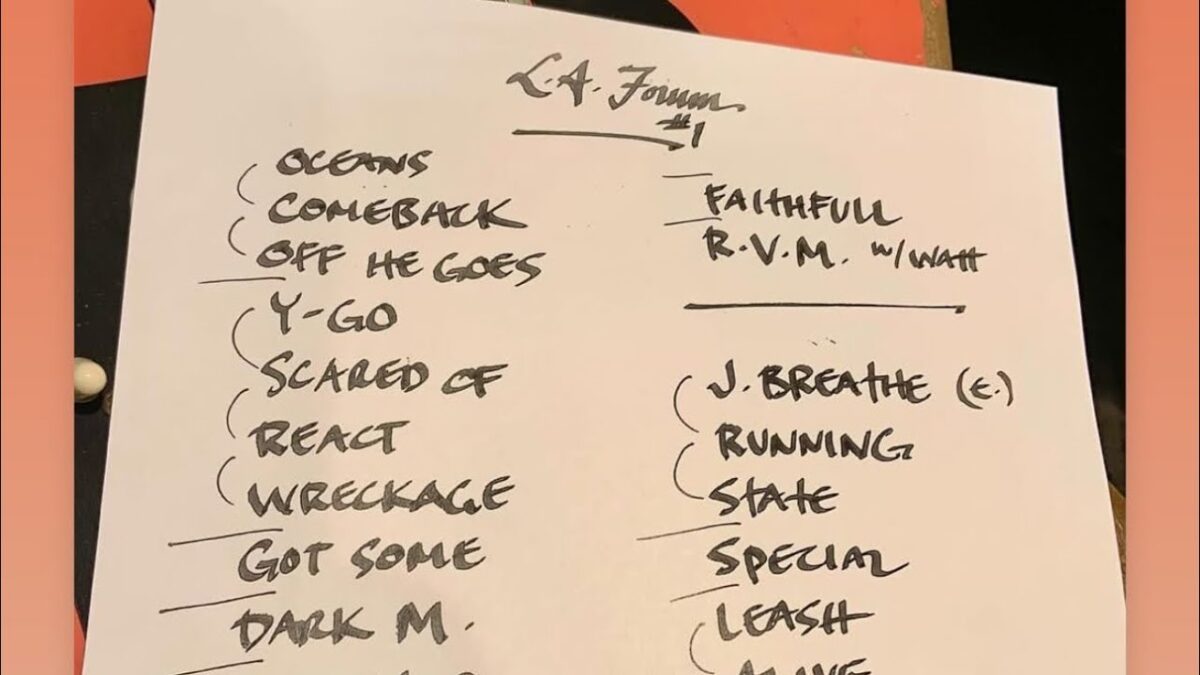 L.A. Forum
#1
OCEANS
COMEBACK
OFF HE GOES
Y-GO
SCARED OF
REACT
WRECKAGE
GOT SOME
DARK M.
FAITHFULL
R.V.M. w/WATT
J. BREATHE (E.)
RUNNING
STATE
SPECIAL
LEASH
ALIVE